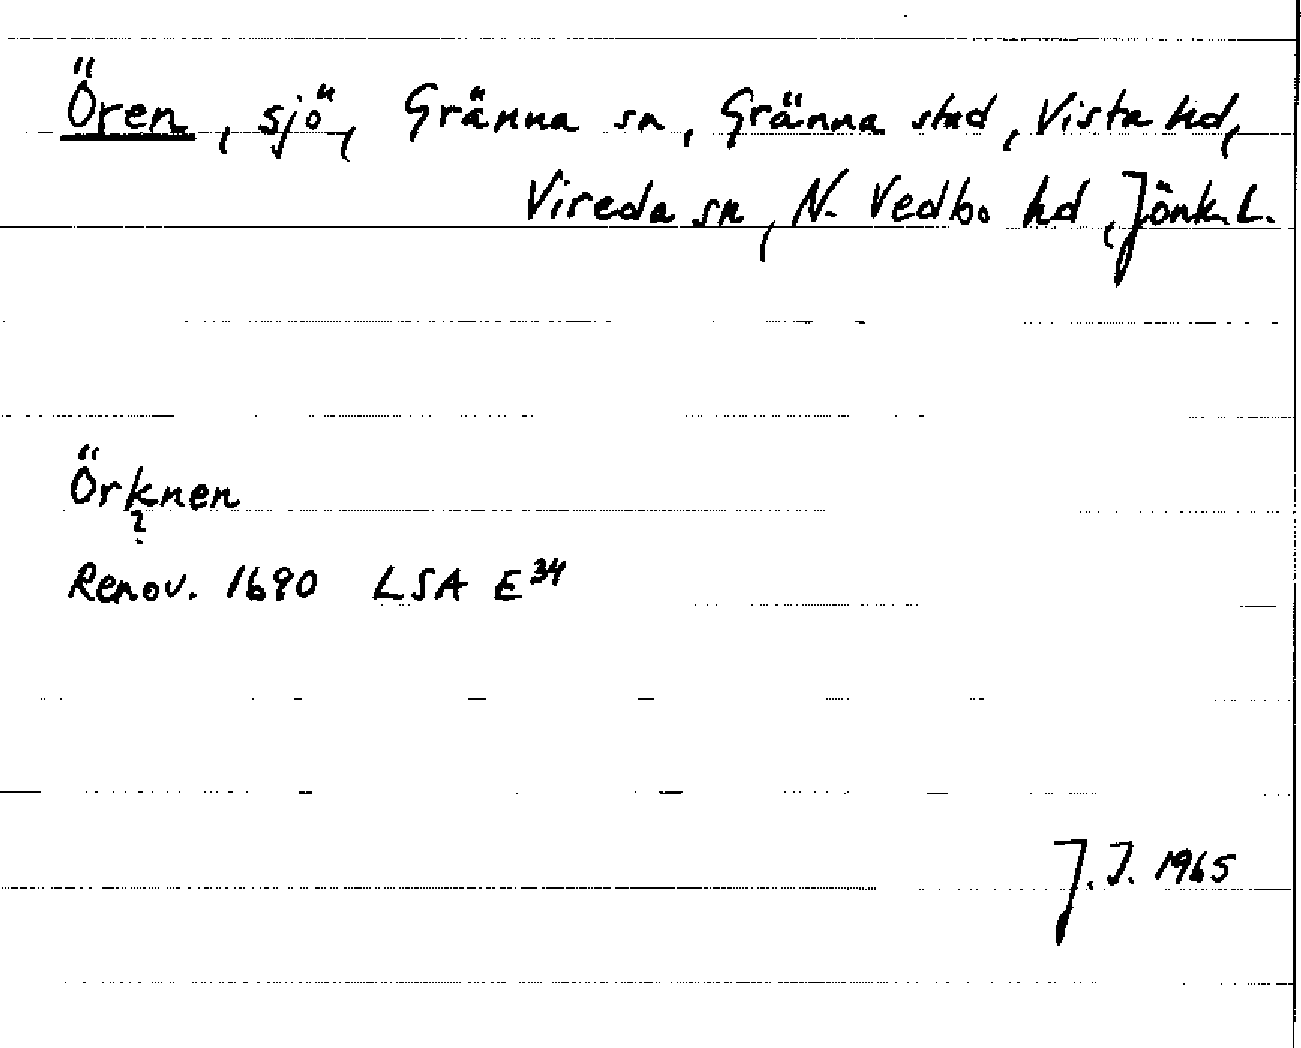 Ören, sjö, Gränna sn, Gränna stad, Vista hd,
Vireda sn, N. Vedbo hd, Jönk. L.
Örknen
?
Renov. 1690 LSA E³⁴
J.I. 1965